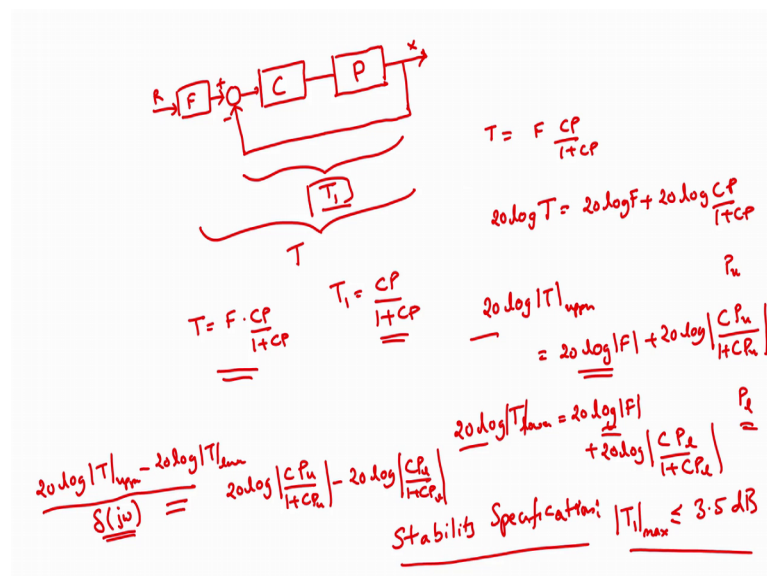 R F + - C P x
T₁
T
T = F · CP/(1+CP)
T₁ = CP/(1+CP)
T = F CP/(1+CP)
20 log T = 20 log F + 20 log CP/(1+CP)
Pᵤ
20 log |T|upper
= 20 log |F| + 20 log |CPᵤ/(1+CPᵤ)|
P_l
20 log |T|lower = 20 log |F|
+ 20 log |CP_l/(1+CP_l)|
20 log |T|upper - 20 log |T|lower
δ(jω)
= 20 log |CPᵤ/(1+CPᵤ)| - 20 log |CP_l/(1+CP_l)|
Stability Specification: |T₁|max ≤ 3.5 dB